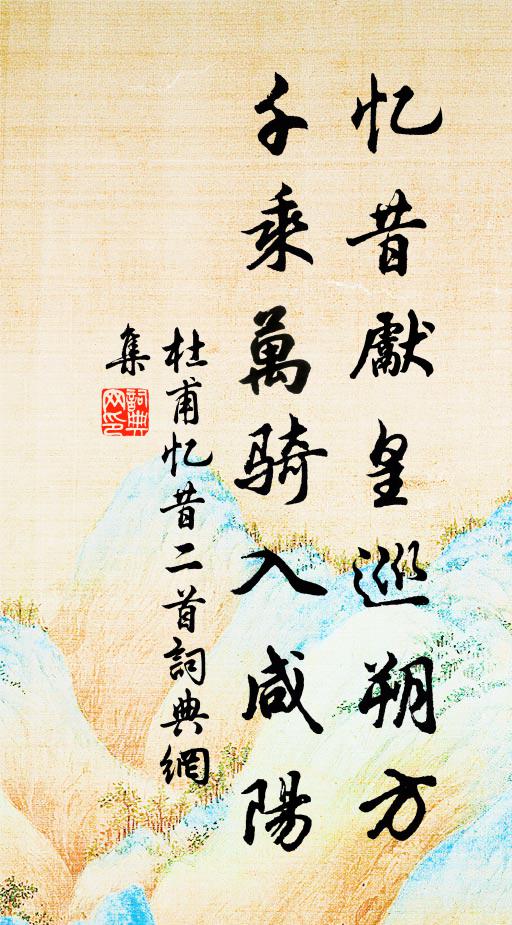 忆昔獻皇巡朔方
千乘萬騎入咸陽
杜甫忆昔二首詞典網
集
詞典網印